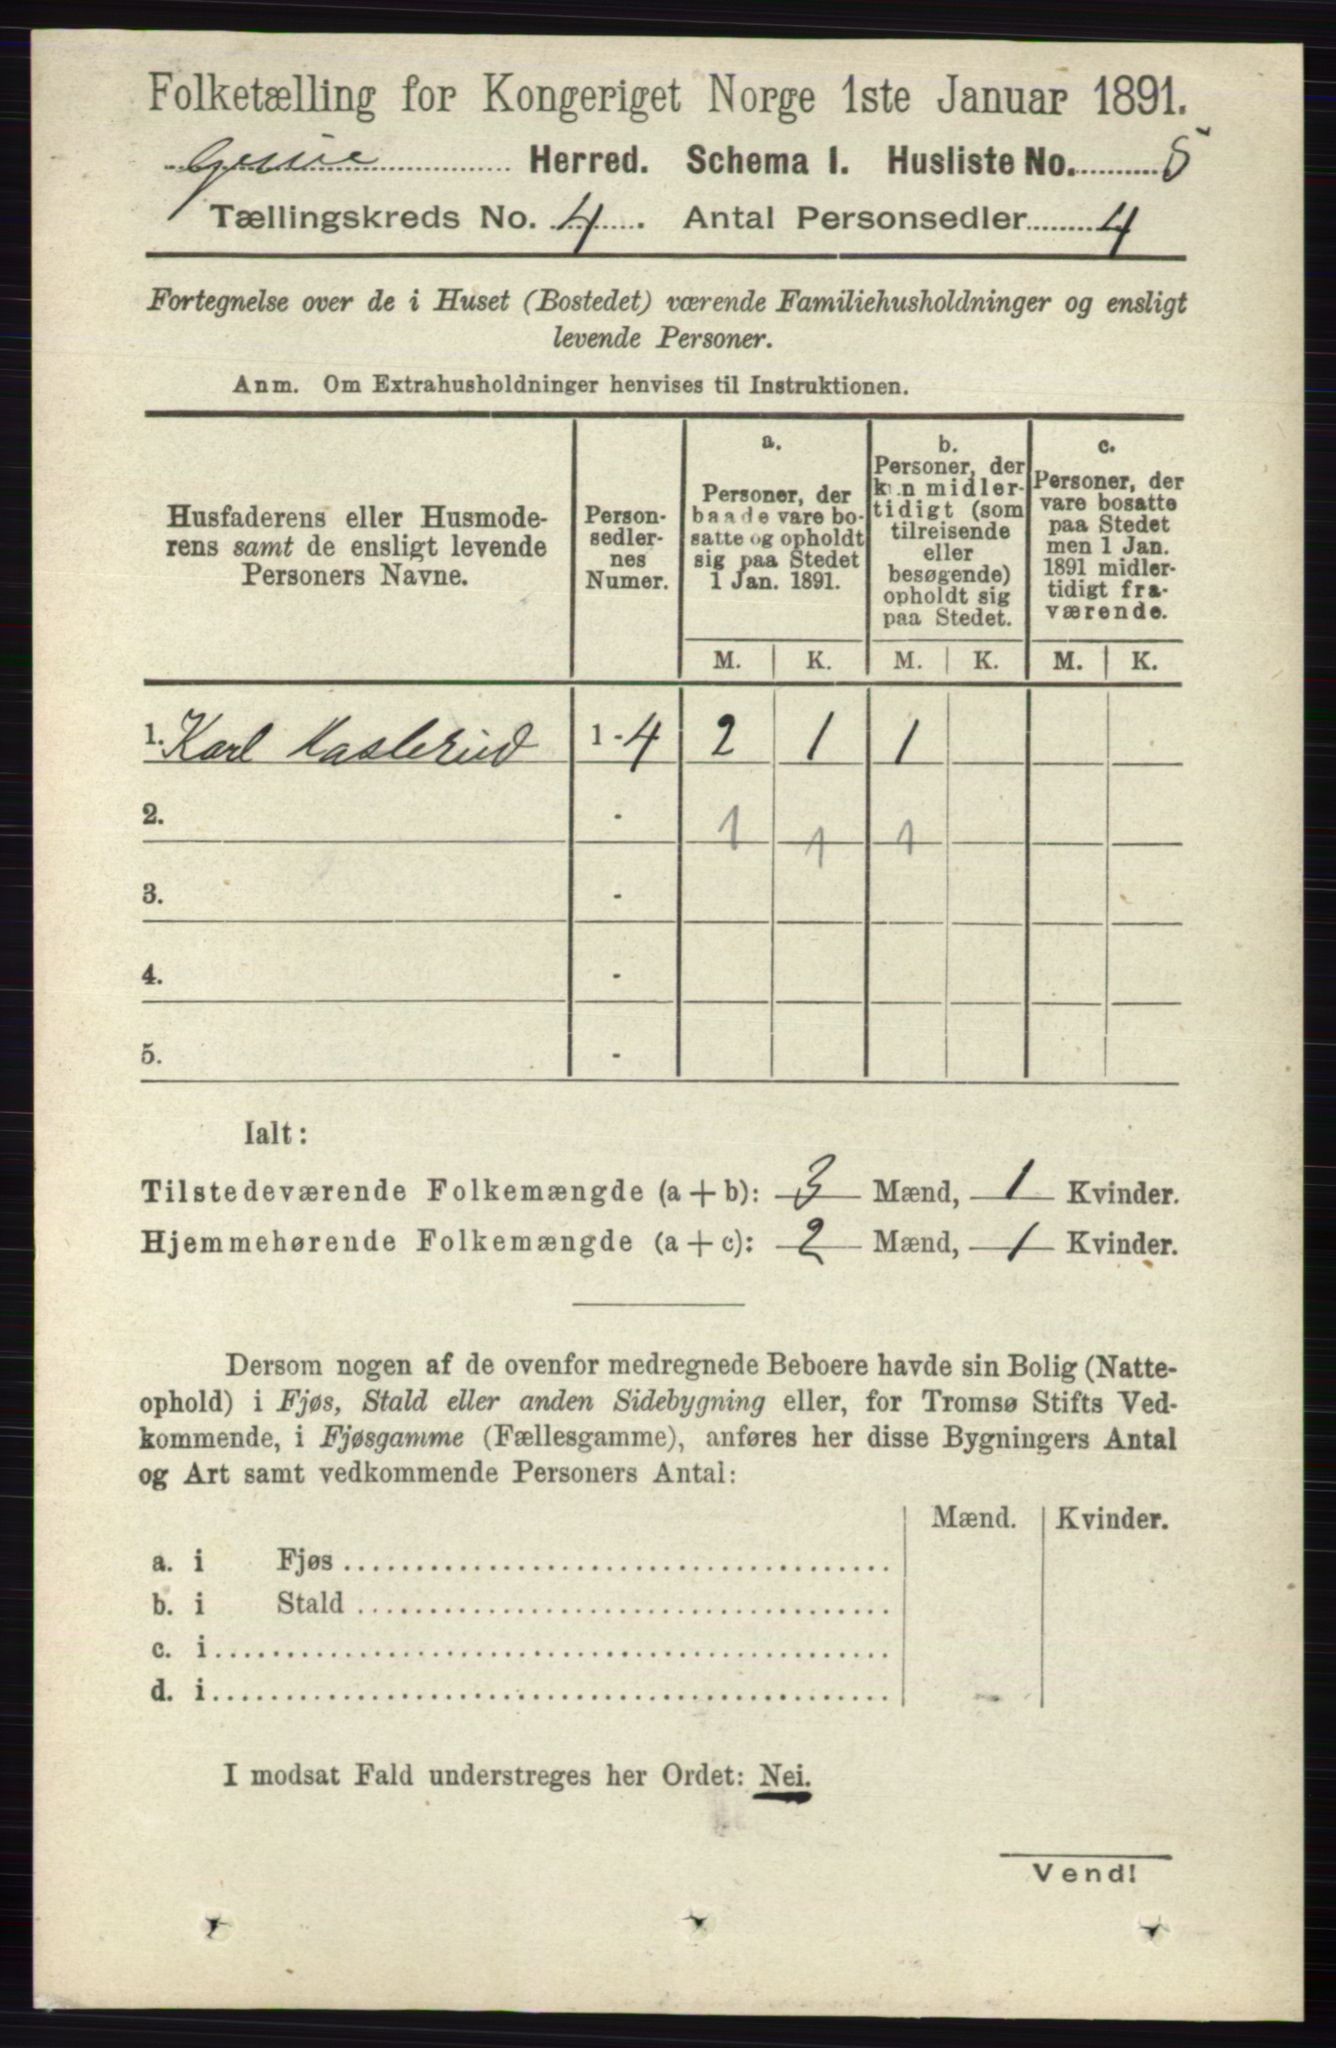 Folketælling for Kongeriget Norge 1ste Januar 1891.
Herred. Schema 1. Husliste No. 5
Tællingskreds No. 4. Antal Personsedler 4
Fortegnelse over de i Huset (Bostedet) værende Familiehusholdninger og ensligt
levende Personer.
Anm. Om Extrahusholdninger henvises til Instruktionen.
Husfaderens eller Husmode-
rens samt de ensligt levende
Personers Navne.
Person-
sedler-
nes
Numer.
a.
Personer, der
baade vare bo-
satte og opholdt
sig paa Stedet
1 Jan. 1891.
b.
Personer, der
kun midler-
tidigt (som
tilreisende
eller
besøgende)
opholdt sig
paa Stedet.
c.
Personer, der
vare bosatte
paa Stedet
men 1 Jan.
1891 midler-
tidigt fra-
værende.
M. K. M. K. M. K.
1. Karl Haslerud 1-4 2 1 1
2. - 1 1 1
3. -
4. -
5. -
Ialt:
Tilstedeværende Folkemængde (a + b): 3 Mænd, 1 Kvinder.
Hjemmehørende Folkemængde (a + c): 2 Mænd, 1 Kvinder.
Dersom nogen af de ovenfor medregnede Beboere havde sin Bolig (Natte-
ophold) i Fjøs, Stald eller anden Sidebygning eller, for Tromsø Stifts Ved-
kommende, i Fjøsgamme (Fællesgamme), anføres her disse Bygningers Antal
og Art samt vedkommende Personers Antal:
Mænd. Kvinder.
a. i Fjøs
b. i Stald
c. i
d. i
I modsat Fald understreges her Ordet: Nei.
Vend!